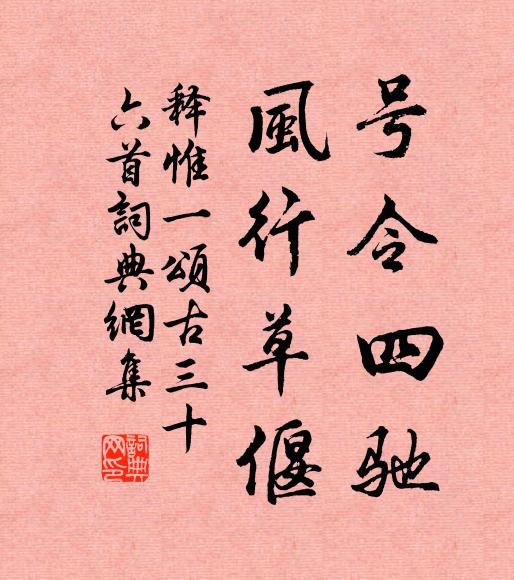 号令四驰
風行草偃
释惟一頌古三十
六首詞典網集
詞典网印